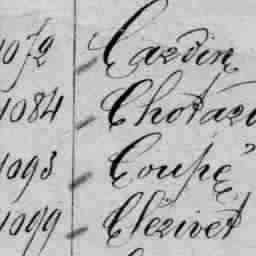 1072 Cardin
1084 Chotard
1093 Coupé
1099 Clérivet